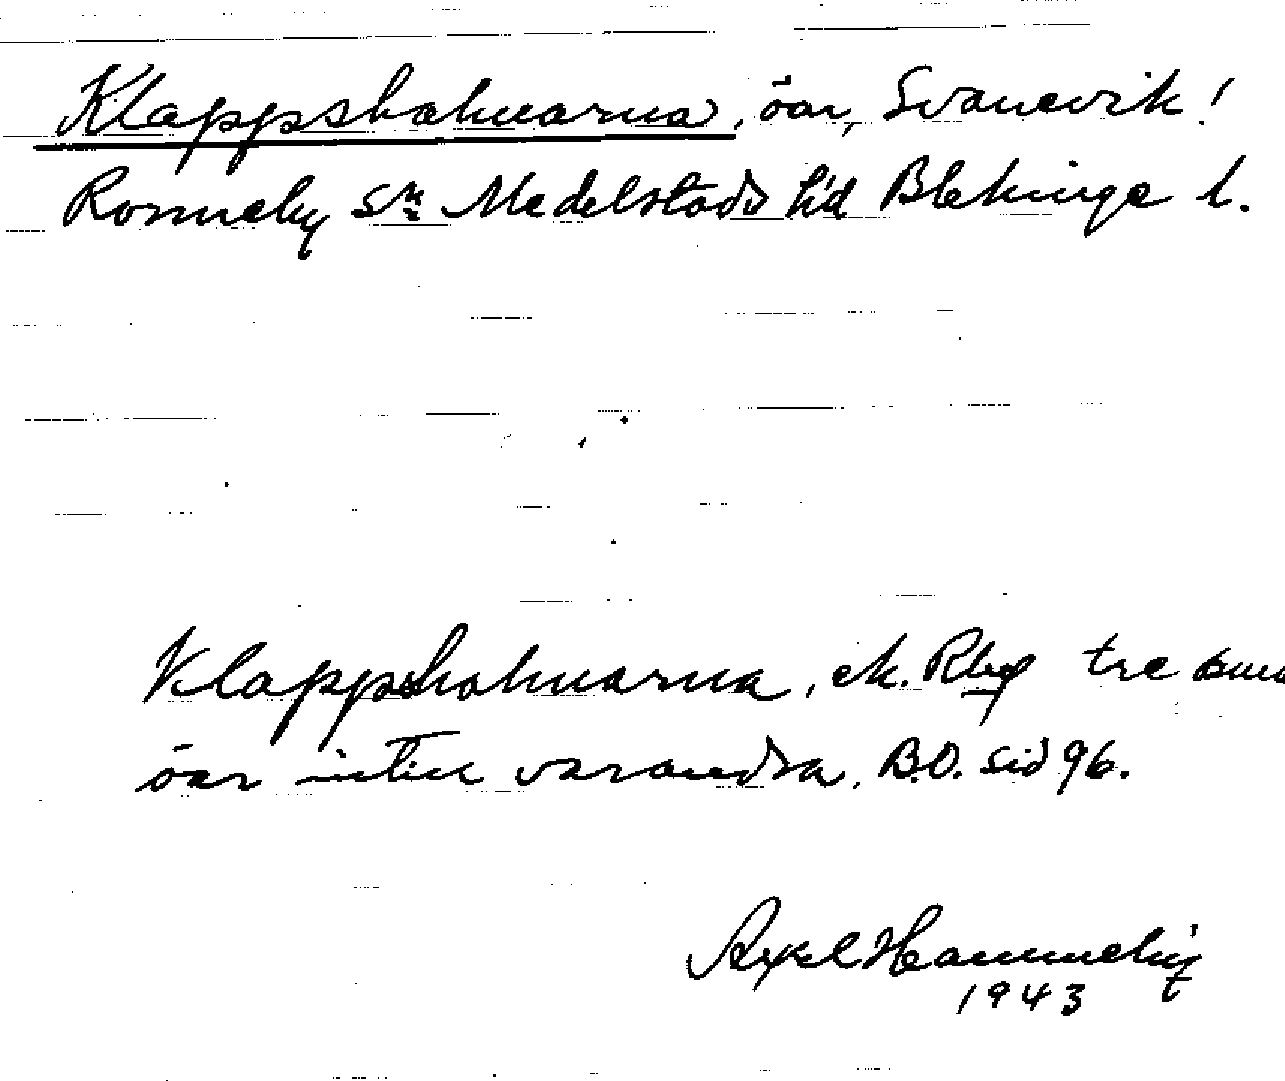 Klappshakuarna, öar, Svanevik!
Ronneby sn Medelstads hd Blekinge l.
Klappshakuarna, ek. Rby tre små
öar intill varandra. B.O. sid 96.
Axel Hammeby
1943